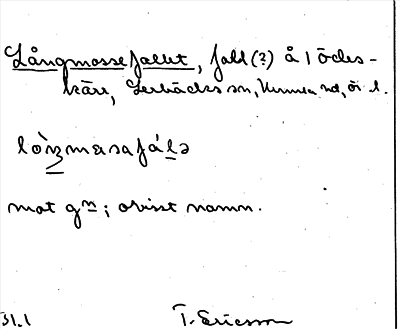 Långmossefallet, fall(?) å 1 Ödes-
kärr, Lerbäcks sn, Kumla hd, Ör l.
lòŋmɷsafálə
mot gⁿ; ovisst namn.
31.1 T. Ericsson